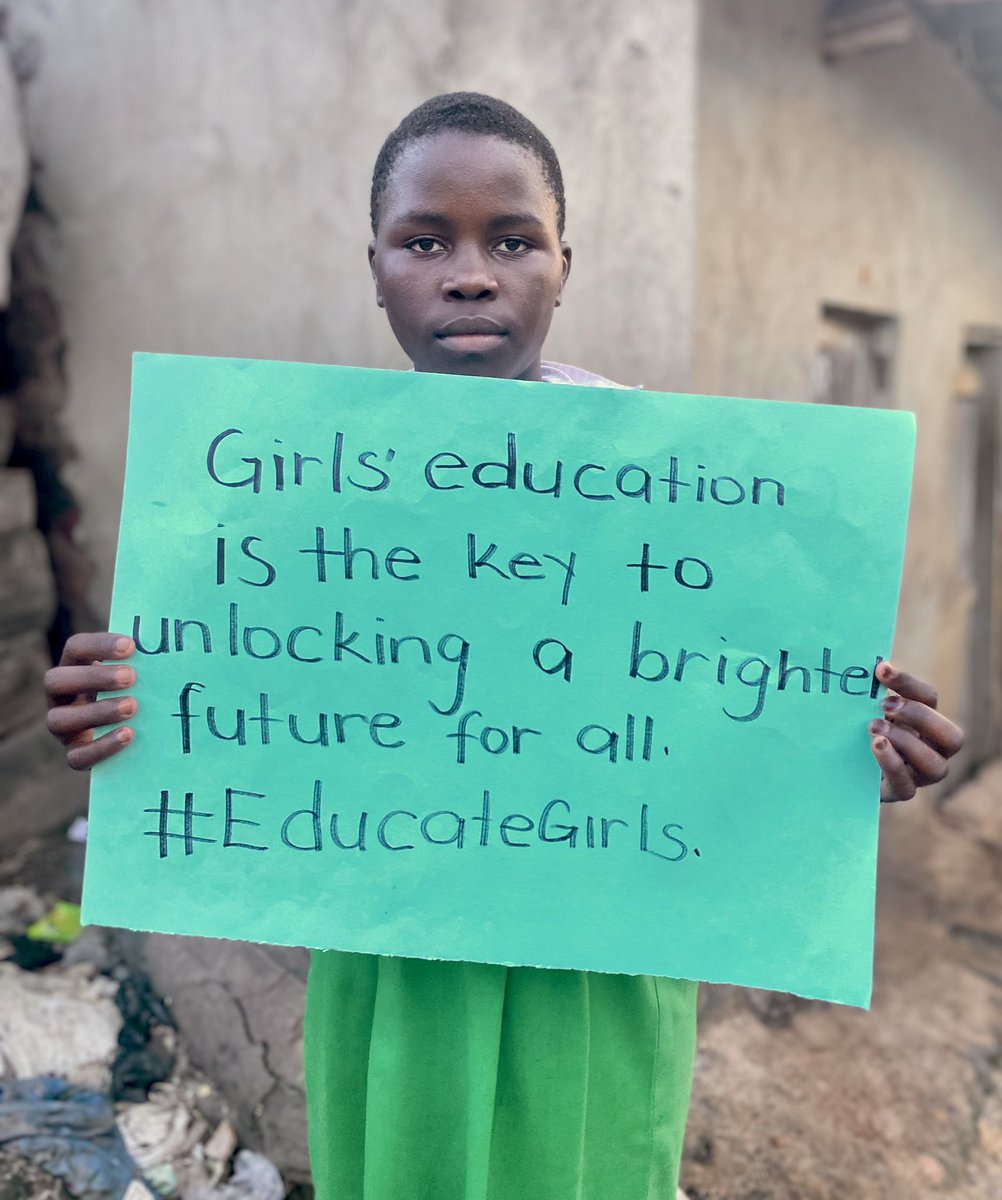 Girls' education
is the key to
unlocking a brighter
future for all.
#EducateGirls.